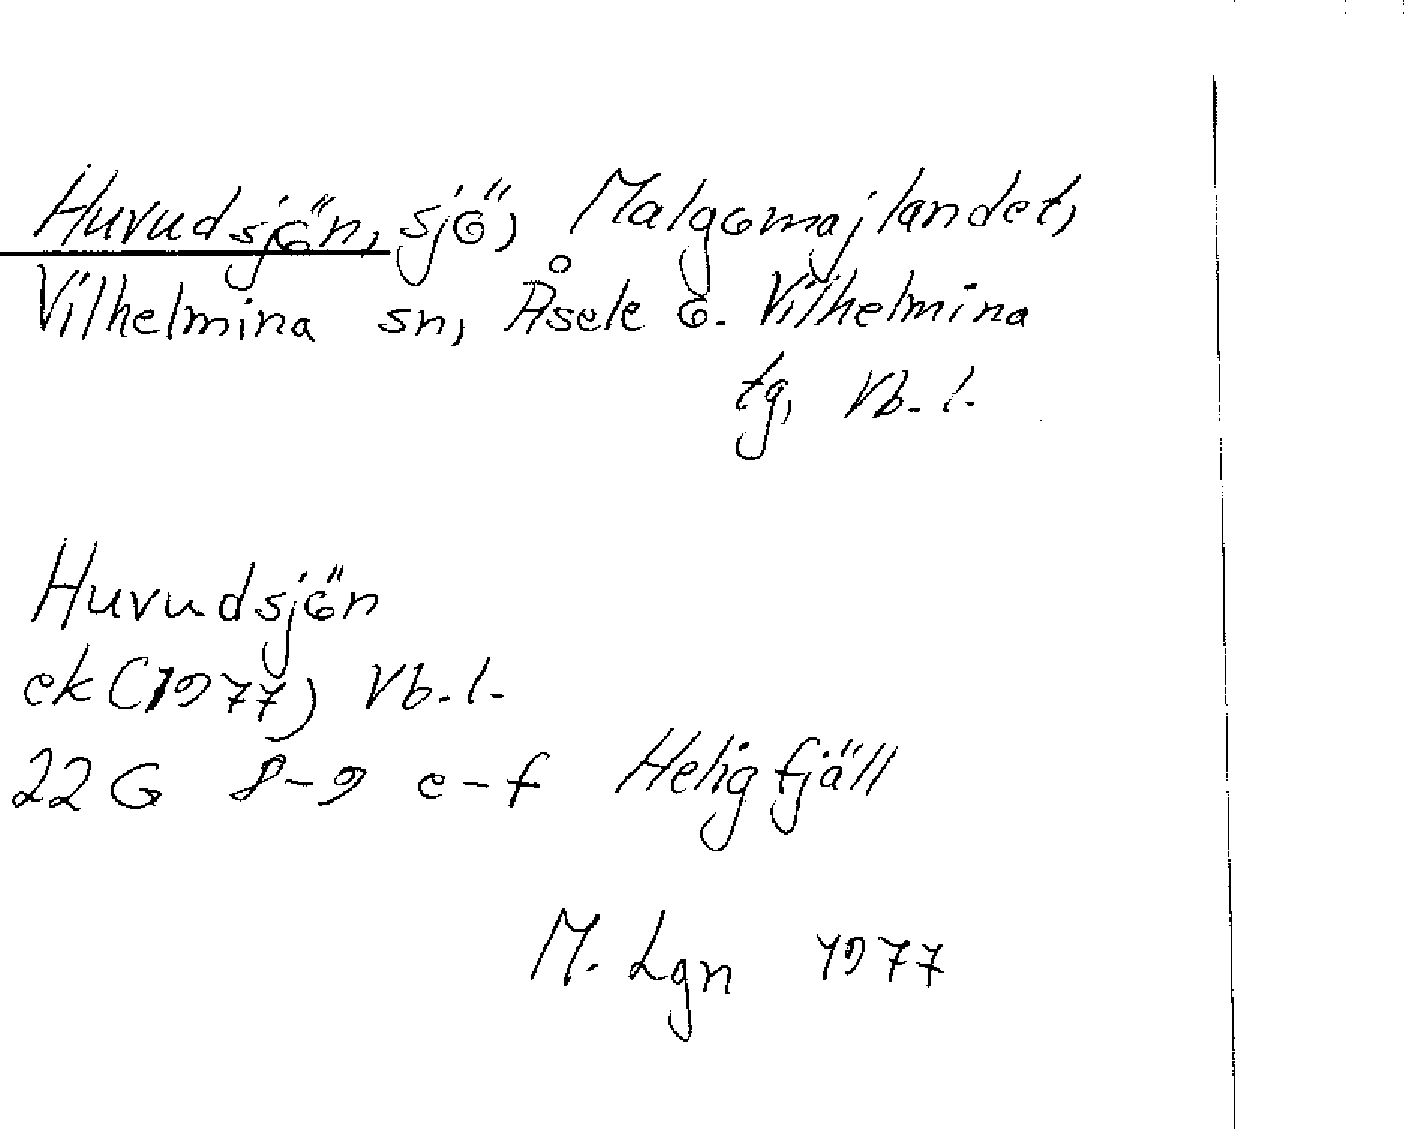 Huvudsjön, sjö, Malgomajlandet,
Vilhelmina sn, Åsele o. Vilhelmina
tg, Vb. l.
Huvudsjön
ek (1977) Vb. l.
22 G 8-9 e-f Heligfjäll
M. Lgn 1977